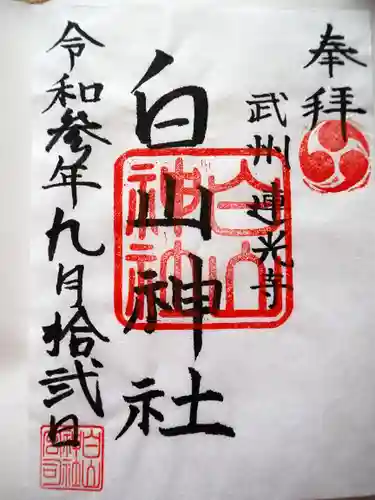 奉拝
武州蓮光寺
白山神社
令和参年九月拾弐日
白山神社
白山神社宮司